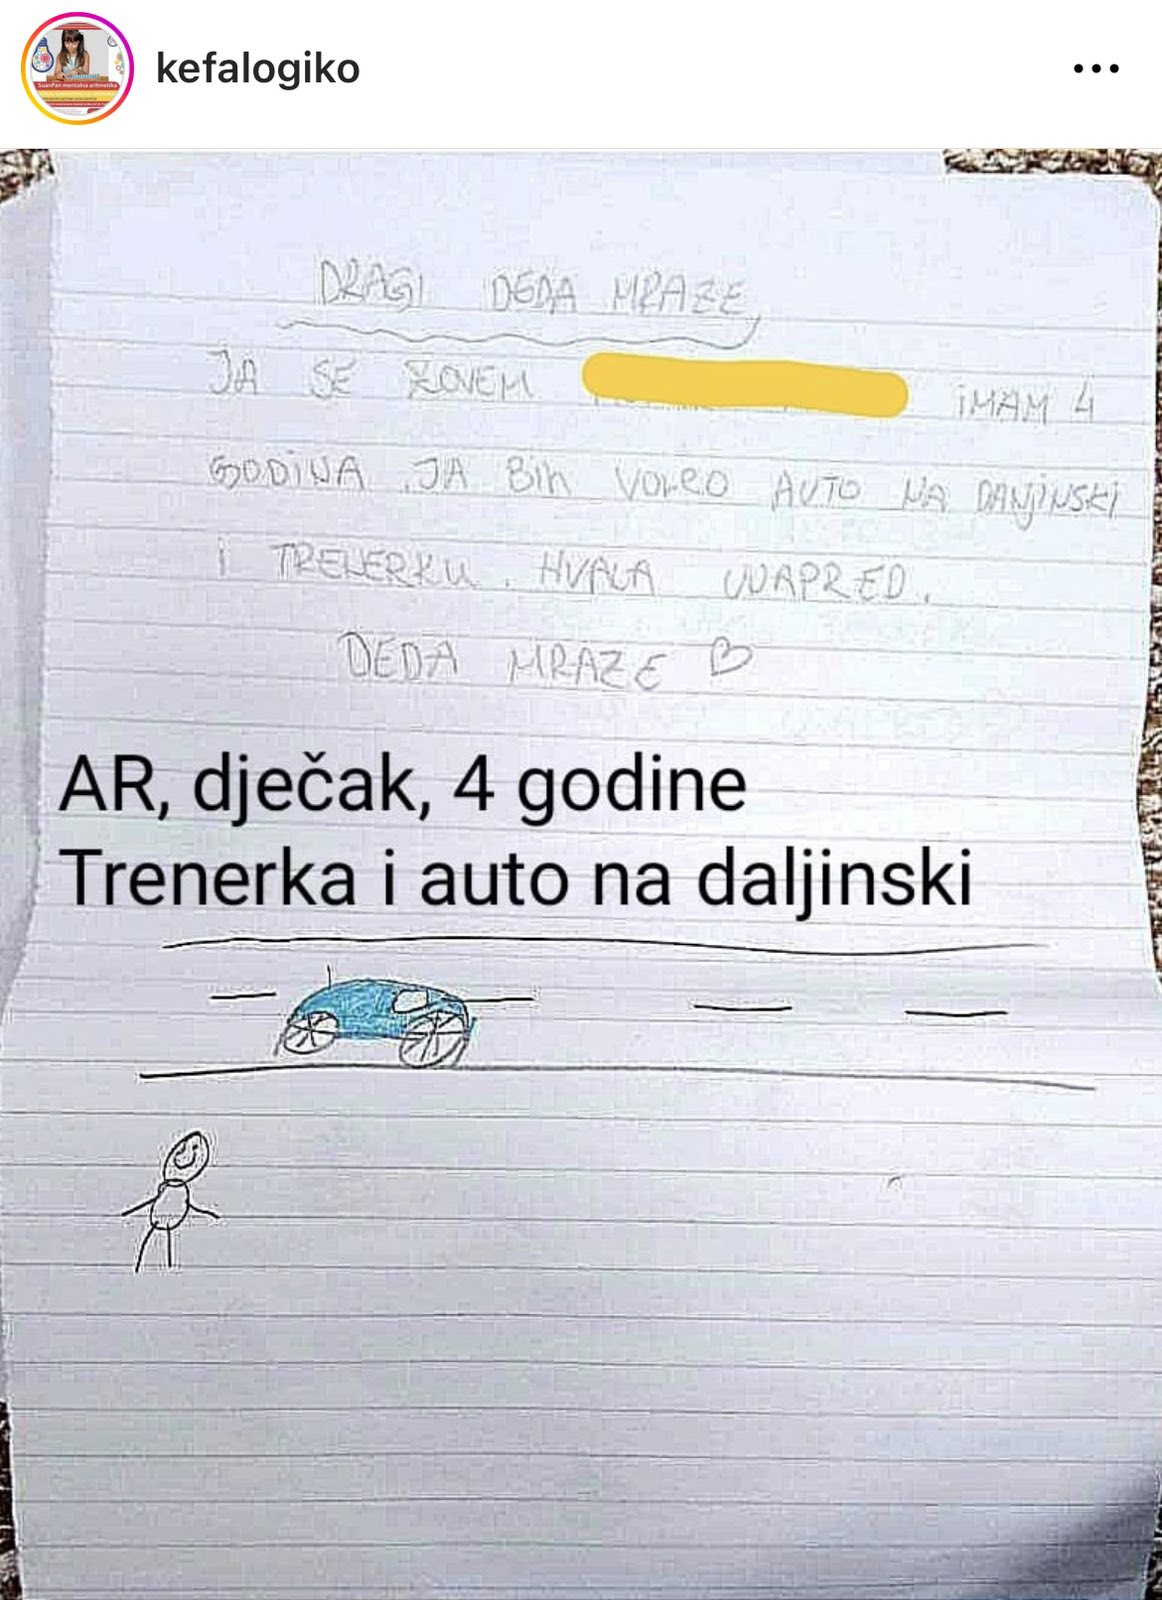 kefalogiko
SuanPan mentalna aritmetika
DRAGI DEDA MRAZE,
JA SE ZOVEM IMAM 4
GODINA . JA BIH VOLEO AUTO NA DANJINSKI
I TRENERKU . HVALA UNAPRED .
DEDA MRAZE
AR, dječak, 4 godine
Trenerka i auto na daljinski